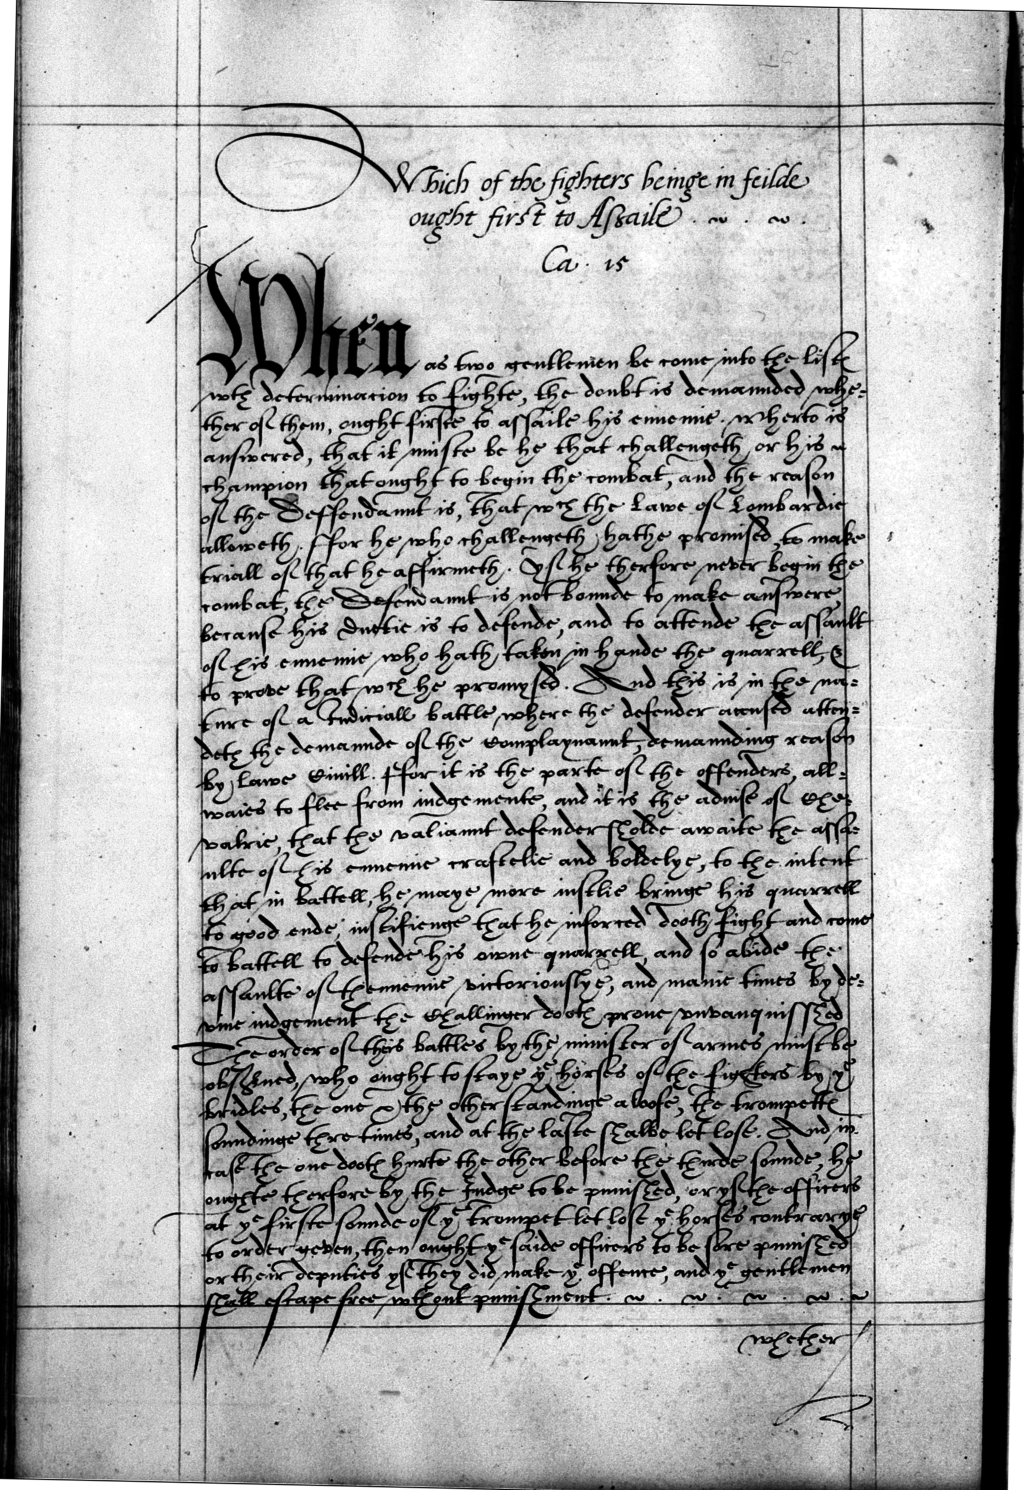 Which of the fighters beinge in feilde
ought first to Assaile
Ca. 15
When as two gentlemen be come into the listes
wth determinacion to fighte, the doubt is demaunded whe-
ther of them, ought firste to assaile his ennemie. wherto is
answered, that it muste be he that challengeth, or his
champion that ought to begin the combat, and the reason
of the Deffendannt is, that wch the Lawe of Lombardie
alloweth. ffor he who challengeth, hathe promised, to make
triall of that he affirmeth. Yf he therfore never begin the
combat, the Defendannt is not bounde to make answere
because his duetie is to defende, and to attende the assault
of his ennemie, who hath, taken in hande the quarrell, &
to prove that wch he promysed. And this is in the na-
ture of a Iudiciall battle, where the defender accused atten-
deth the demaunde of the Complaynannt, demaunding reason
by Lawe Civill. ffor it is the parte of the offenders, all-
waies to flee from iudgemente, and it is the advise of Che-
valrie, that the valiannt defender sholde awaite the assa-
ulte of his ennemie craftelie and boldelye, to the intent
that in battell, he maye more iustlie bringe his quarrell
to good ende, iustifienge that he inforced dooth fight and come
to battell to defende his owne quarrell, and so abide the
assaulte of thennemie victoriouslye, and manie times by de-
vine iudgement the Challinger dooth prove vnvanquisshed
The order of this battles by the minister of armes must be
observed, who ought to staye ye horses of the fighters by ye
bridles, the one & the other standinge aloofe, the trompettes
soundinge thre times, and at the laste shalbe let lose. And in
case the one dooth hurte the other before the thirde sounde, he
oughte therfore by the Iudge to be punished, or yf the officers
at ye firste sounde of ye trompet let lose ye horses contrarye
to order geven, then ought ye saide officers to be sore punished
or their deputies yf they did make ye offence, and ye gentlemen
shall escape free, wthout punishment.
whether